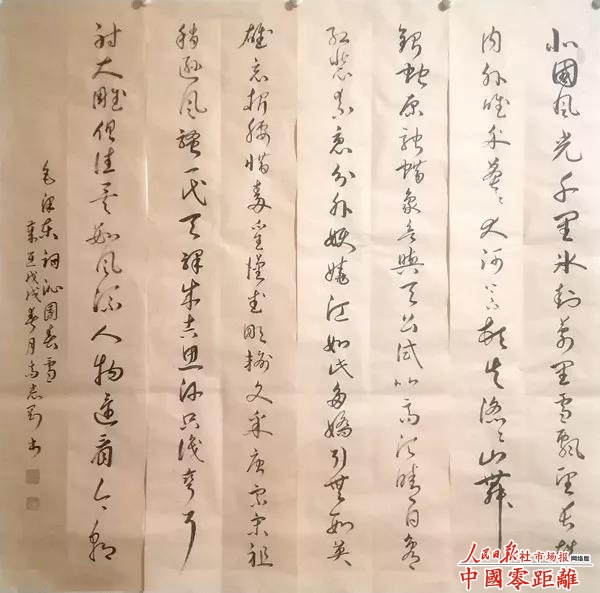 北國风光千里冰封萬里雪飄望长城
内外唯余莽〻大河上下頓失滔〻山舞
銀蛇原驰蜡象欲與天公试比高须晴日看
红装素裹分外妖娆江如此多嬌引無數英
雄竞折腰惜秦皇漢武略輸文采唐宗宋祖
稍逊风骚一代天骄成吉思汗只识弯弓
射大雕俱往矣数风流人物還看今朝
毛泽东词沁園春雪
戊戌春月
书
人民日报社市场报网络版
中國零距離